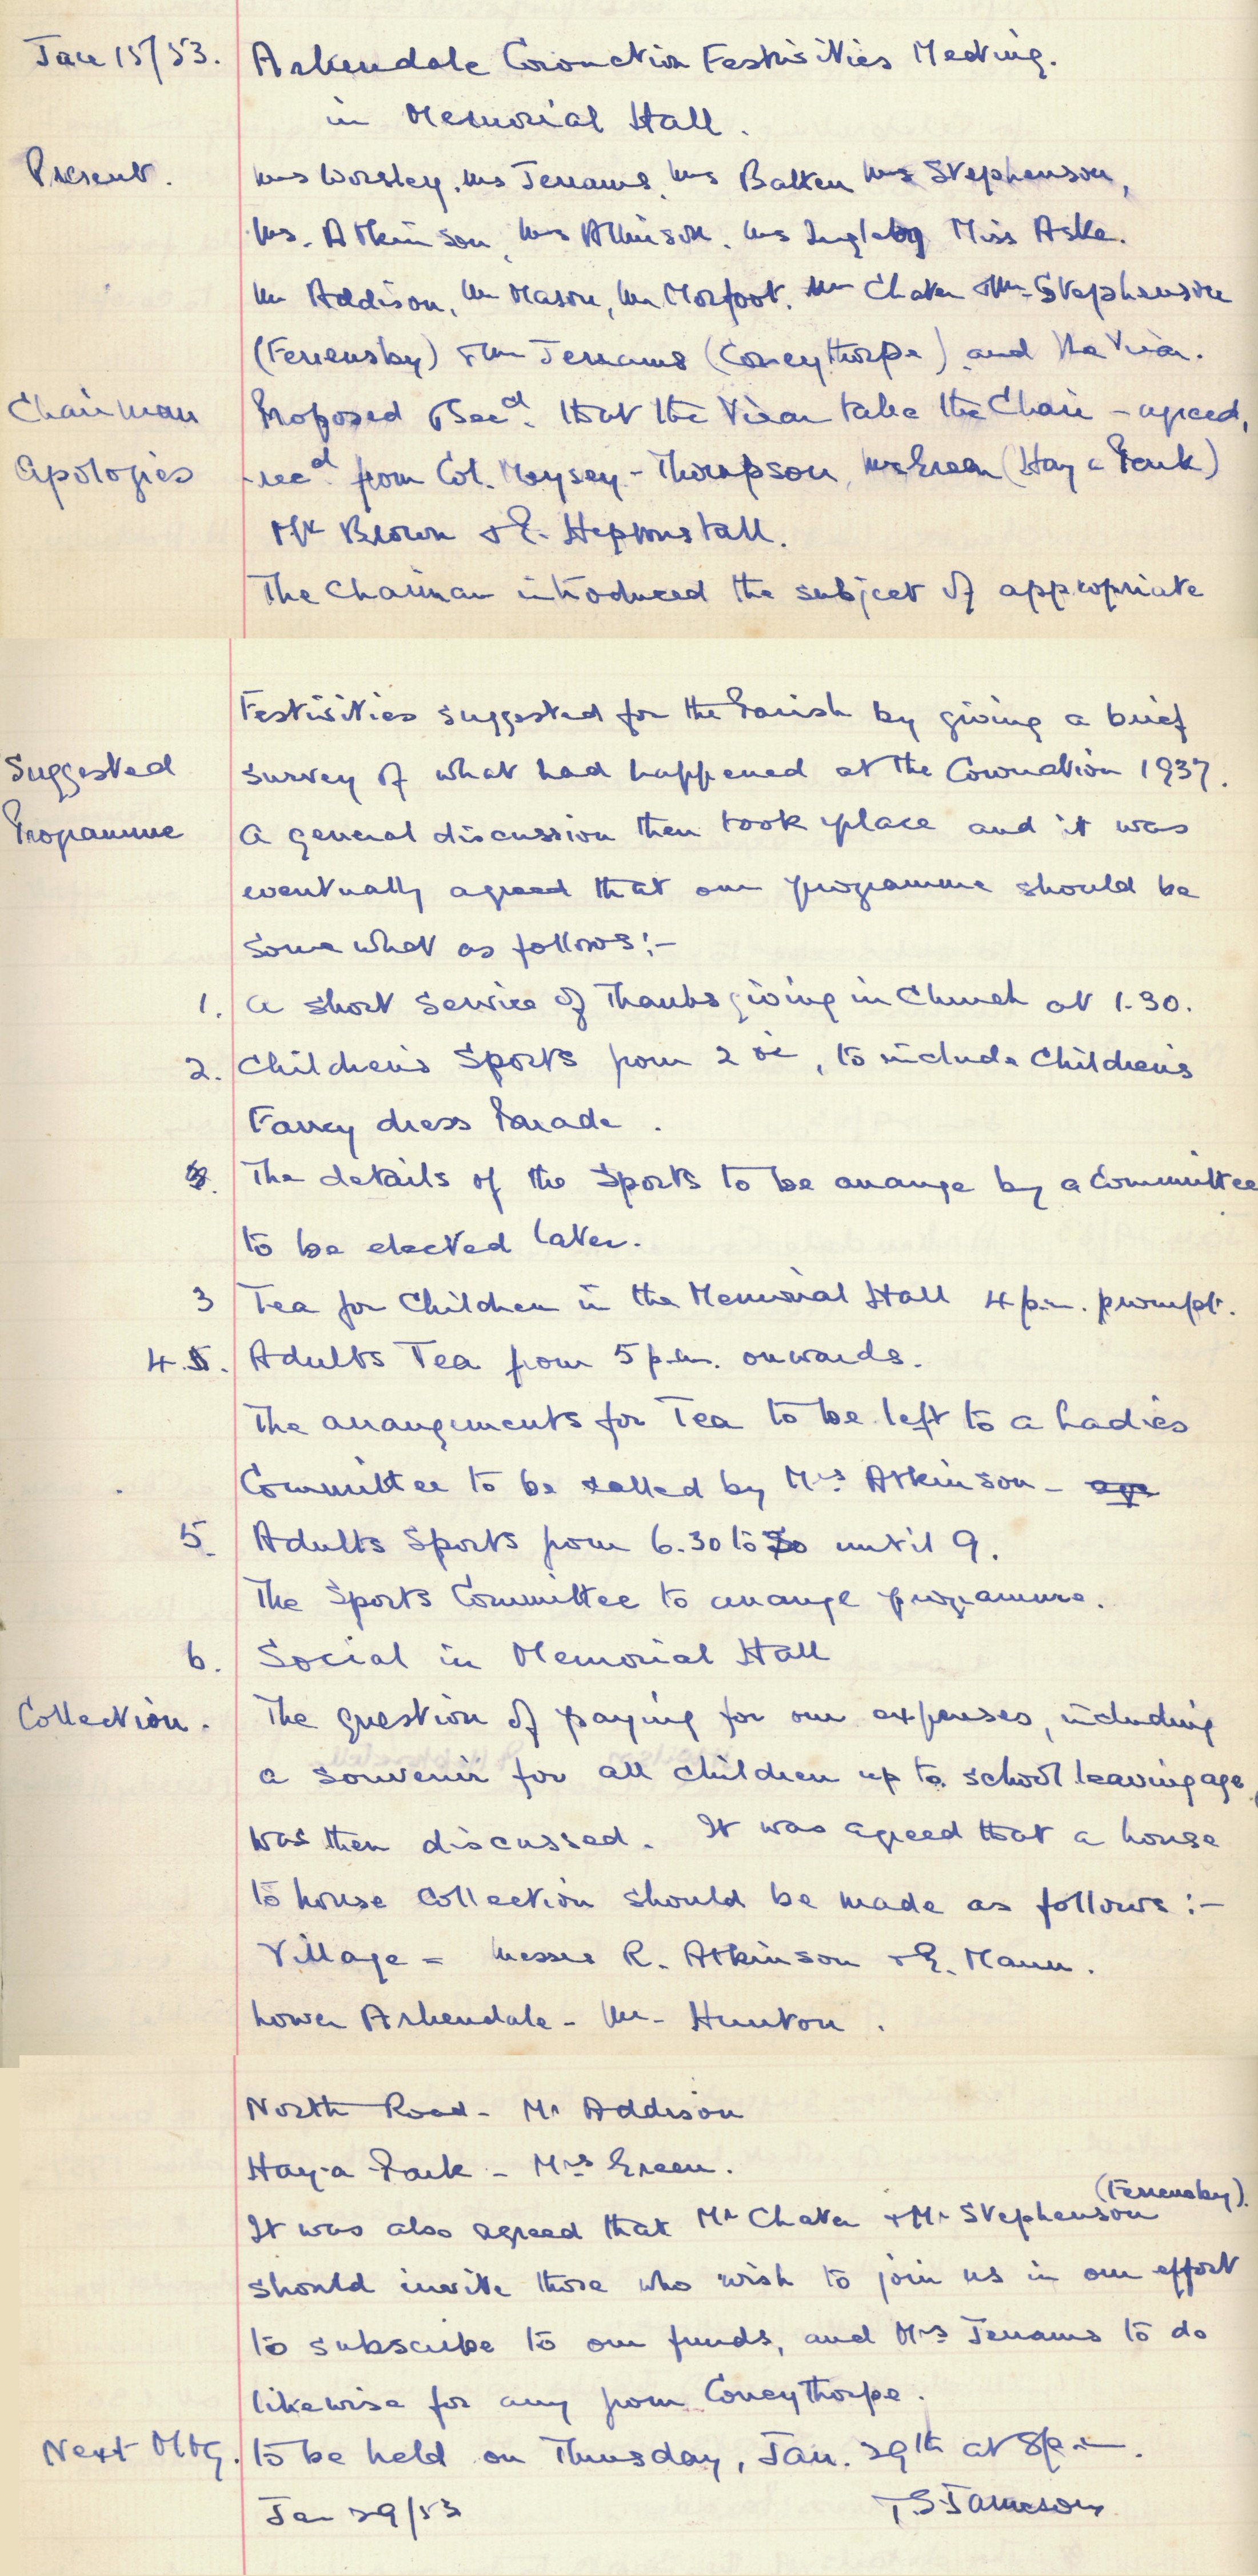 Jan 15/53. Arkendale Coronation Festivities Meeting.
in Memorial Hall.
Present. Mrs Worsley, Mrs Jenams, Mrs Batten Mrs Stephenson,
Mrs. Atkinson, Mrs Atkinson, Mrs Ingleby Miss Aske.
Mr Addison, Mr Mason, Mr Morfoot, Mr Chater & Mr Stephenson
(Ferrensby) & Mr Jenams (Coneythorpe) and the Vicar.
Chairman Proposed & Secd. that the Vicar take the Chair - agreed,
Apologies - recd from Col. Meysey-Thompson, Mrs Green (Hay a Park)
Mr Brown & E. Heptonstall.
The Chairman introduced the subject of appropriate
Festivities suggested for the Parish by giving a brief
Suggested survey of what had happened at the Coronation 1937.
Programme A general discussion then took place and it was
eventually agreed that our programme should be
somewhat as follows:-
1. A short Service of Thanksgiving in Church at 1.30.
2. Children's Sports from 2 oc, to include Children's
Fancy dress Parade.
3. The details of the Sports to be arrange by a Committee
to be elected later.
3 Tea for Children in the Memorial Hall 4 p.m. prompt.
4.5. Adults Tea from 5 p.m. onwards.
The arrangements for Tea to be left to a Ladies
Committee to be called by Mrs Atkinson - age
5. Adults Sports from 6.30 to until 9.
The Sports Committee to arrange programme.
6. Social in Memorial Hall
Collection. The question of paying for our expenses, including
a souvenir for all children up to school leaving age,
was then discussed. It was agreed that a house
to house collection should be made as follows:-
Village - Messrs R. Atkinson & E. Mann.
Lower Arkendale - Mr. Hunton.
North Road - Mr Addison
Hay-a-Park - Mrs Green.
It was also agreed that Mr Chater & Mr Stephenson (Ferrensby).
should invite those who wish to join us in our effort
to subscribe to our funds, and Mrs Jenams to do
likewise for any from Coneythorpe.
Next Mtg. to be held on Thursday, Jan. 29th at 8 p.m.
Jan 29/53 T.S. Jameson